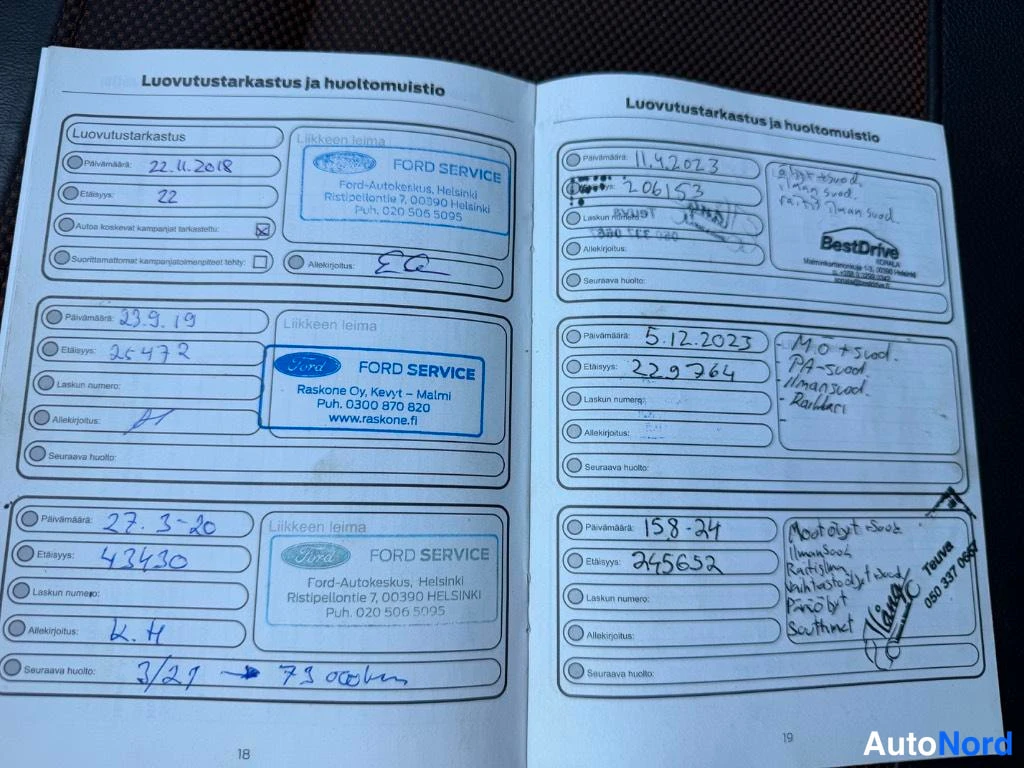 Luovutustarkastus ja huoltomuistio
Luovutustarkastus
Liikkeen leima
Päivämäärä: 22.11.2018
Etäisyys: 22
Autoa koskevat kampanjat tarkastettu:
Suorittamattomat kampanjatoimenpiteet tehty:
Ford
FORD SERVICE
Ford-Autokeskus, Helsinki
Ristipellontie 7, 00390 HELSINKI
Puh. 020 506 5095
Allekirjoitus:
Päivämäärä: 23.9.19
Etäisyys: 25472
Laskun numero:
Allekirjoitus:
Seuraava huolto:
Liikkeen leima
Ford
FORD SERVICE
Raskone Oy, Kevyt – Malmi
Puh. 0300 870 820
www.raskone.fi
Päivämäärä: 27.3-20
Etäisyys: 43430
Laskun numero:
Allekirjoitus: K.H
Seuraava huolto: 3/21 → 73 000km
Liikkeen leima
Ford
FORD SERVICE
Ford-Autokeskus, Helsinki
Ristipellontie 7, 00390 HELSINKI
Puh. 020 506 5095
18
Luovutustarkastus ja huoltomuistio
Päivämäärä: 11.4.2023
206153
Laskun numero:
Allekirjoitus:
Seuraava huolto:
ilman suod.
raitis ilman suod.
BestDrive
KONALA
Päivämäärä: 5.12.2023
Etäisyys: 229764
Laskun numero:
Allekirjoitus:
Seuraava huolto:
- M.Ö + suod.
PA-suod.
- Ilmansuod.
Päivämäärä: 15.8-24
Etäisyys: 245652
Laskun numero:
Allekirjoitus:
Seuraava huolto:
Ilmansuod
Teuva
050 337 0667
19
AutoNord